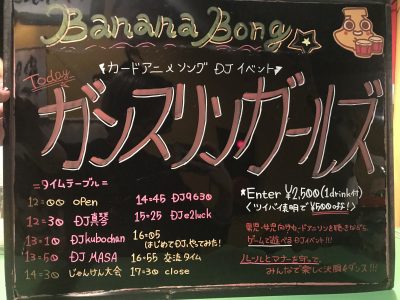 Banana Bong
Today
カードアニメソング DJイベント
ガンスリンガールズ
=タイムテーブル=
12=00 open
12=30 DJ真琴
13=10 DJkubochan
13=50 DJ MASA
14=30 じゃんけん大会
14=45 DJ9630
15=25 DJe2luck
16=05
はじめてDJ、やってみた!
16=55 交流タイム
17=30 close
*Enter ¥2,500(1drink付)
<ツイパイ表明で¥500off!>
ゲームで遊べるDJイベント!!!
ルールとマナーを守って、
みんなで楽しく決闘&ダンス!!!